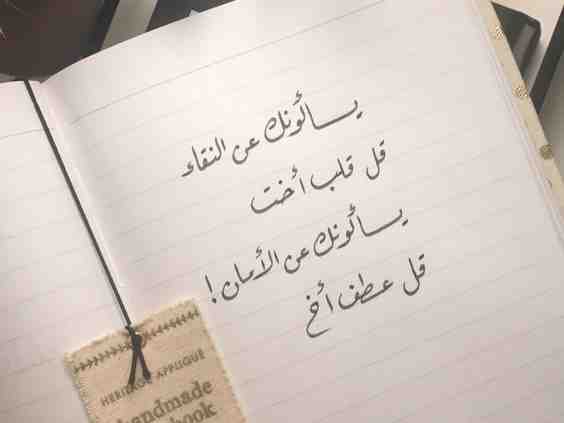 يسألونك عن النقاء
قل قلب أخت
يسألونك عن الأمان !
قل عطف أخ
HERITAGE APPLIQUÉ
handmade
book